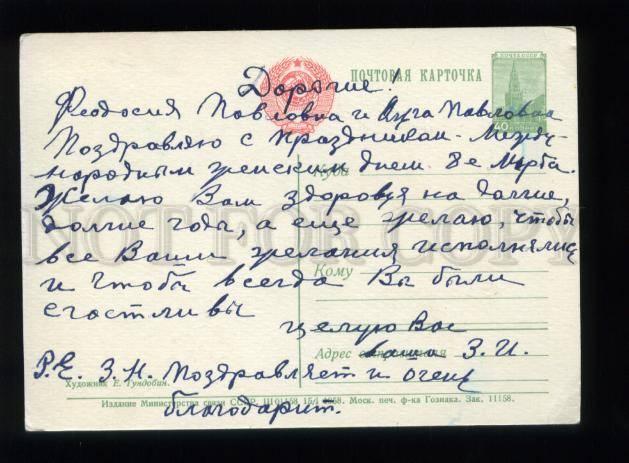 ПОЧТОВАЯ КАРТОЧКА
ПОЧТА СССР
40
Дорогие!
Феодосия Павловна и Павловна
Поздравляю с Праздником - Между-
народным женским днем 8е Марта.
Желаю Вам здоровья на долгие,
долгие годы, а еще желаю, чтобы
все Ваши желания исполнялись
и чтобы всегда Вы были
счастливы
целую Вас
ваша З.И.
Р.Е. З.Н. Поздравляет и очень
благодарит.
Куда
Кому
Адрес отправителя
Художник Е. Гундобин.
Издание Министерства связи СССР. 15/I 1958. Моск. печ. ф-ка Гознака. Зак. 11158.
NOT FOR COPY